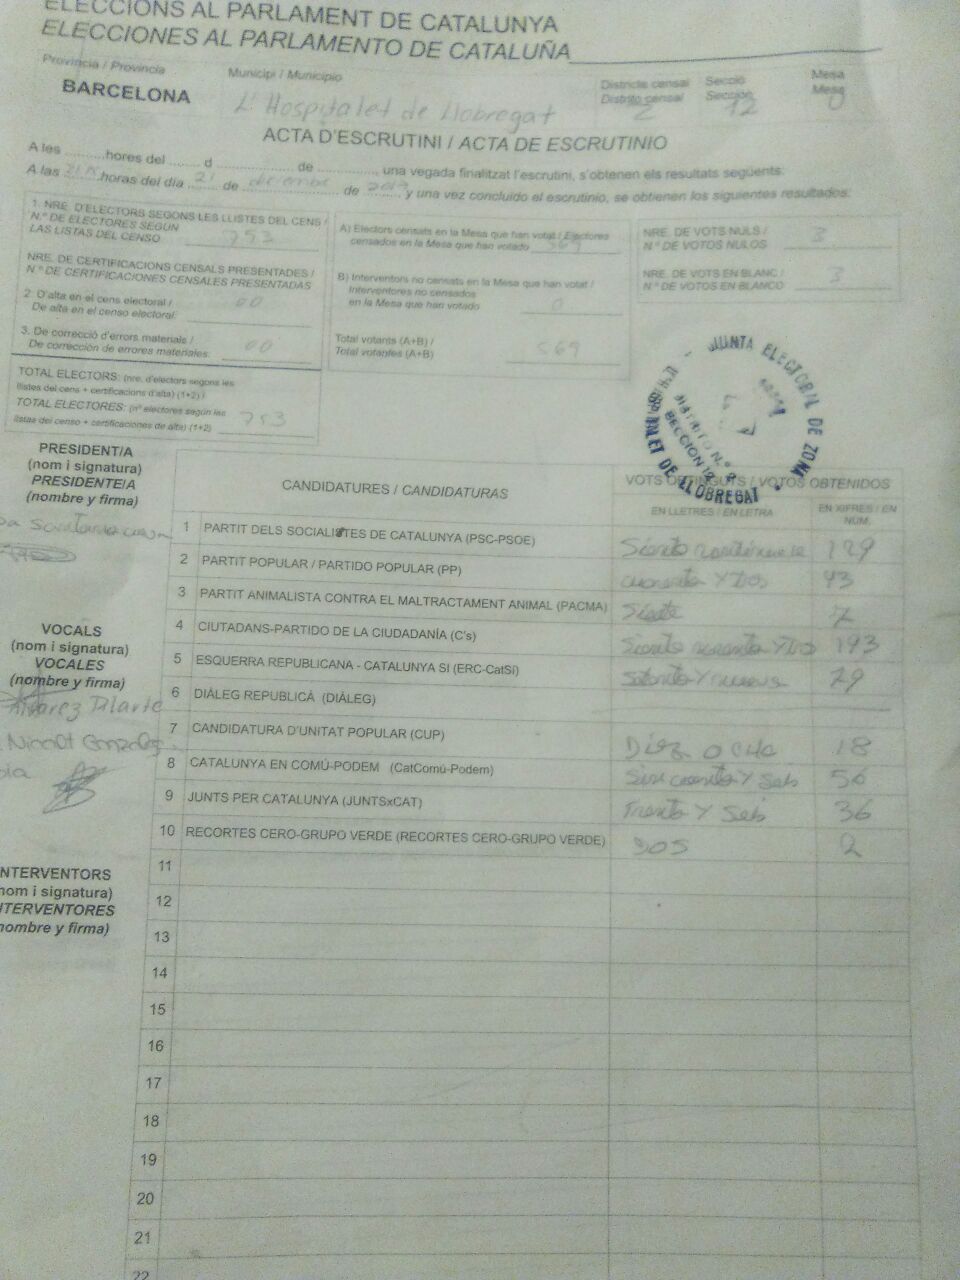 ELECCIONS AL PARLAMENT DE CATALUNYA
ELECCIONES AL PARLAMENTO DE CATALUÑA
Provincia / Provincia
Municipi / Municipio
Districte censal
Distrito censal
Secció
Sección
Mesa
Mesa
BARCELONA
L'Hospitalet de Llobregat
2
12
U
ACTA D'ESCRUTINI / ACTA DE ESCRUTINIO
A les ..........hores del ........ d .................... de ................, una vegada finalitzat l'escrutini, s'obtenen els resultats següents:
A las horas del día 21 de diciembre de y una vez concluido el escrutinio, se obtienen los siguientes resultados:
1. NRE. D'ELECTORS SEGONS LES LLISTES DEL CENS /
N.º DE ELECTORES SEGÚN
LAS LISTAS DEL CENSO 753
NRE. DE CERTIFICACIONS CENSALS PRESENTADES /
N.º DE CERTIFICACIONES CENSALES PRESENTADAS
2. D'alta en el cens electoral /
De alta en el censo electoral: 00
3. De correcció d'errors materials /
De corrección de errores materiales: 00
TOTAL ELECTORS: (nre. d'electors segons les
llistes del cens + certificacions d'alta) (1+2) /
TOTAL ELECTORES: (nº electores según las
listas del censo + certificaciones de alta) (1+2) 753
A) Electors censats en la Mesa que han votat / Electores
censados en la Mesa que han votado 569
B) Interventors no censats en la Mesa que han votat /
Interventores no censados
en la Mesa que han votado 0
Total votants (A+B) /
Total votantes (A+B) 569
NRE. DE VOTS NULS /
N.º DE VOTOS NULOS 3
NRE. DE VOTS EN BLANC /
N.º DE VOTOS EN BLANCO 3
JUNTA ELECTORAL DE ZONA
L'HOSPITALET DE LLOBREGAT
DISTRITO N.º 2
SECCION 12
PRESIDENT/A
(nom i signatura)
PRESIDENTE/A
(nombre y firma)
VOCALS
(nom i signatura)
VOCALES
(nombre y firma)
Alvarez
INTERVENTORS
(nom i signatura)
INTERVENTORES
(nombre y firma)
CANDIDATURES / CANDIDATURAS
VOTS OBTINGUTS / VOTOS OBTENIDOS
EN LLETRES / EN LETRA
EN XIFRES / EN NUM.
1 PARTIT DELS SOCIALISTES DE CATALUNYA (PSC-PSOE) 129
2 PARTIT POPULAR / PARTIDO POPULAR (PP) 43
3 PARTIT ANIMALISTA CONTRA EL MALTRACTAMENT ANIMAL (PACMA) Siete 7
4 CIUTADANS-PARTIDO DE LA CIUDADANÍA (C's) 193
5 ESQUERRA REPUBLICANA - CATALUNYA SÍ (ERC-CatSí) 79
6 DIÀLEG REPUBLICÀ (DIÀLEG)
7 CANDIDATURA D'UNITAT POPULAR (CUP) Diez ocho 18
8 CATALUNYA EN COMÚ-PODEM (CatComú-Podem) 56
9 JUNTS PER CATALUNYA (JUNTSxCAT) Treinta y seis 36
10 RECORTES CERO-GRUPO VERDE (RECORTES CERO-GRUPO VERDE) DOS 2
11
12
13
14
15
16
17
18
19
20
21
22